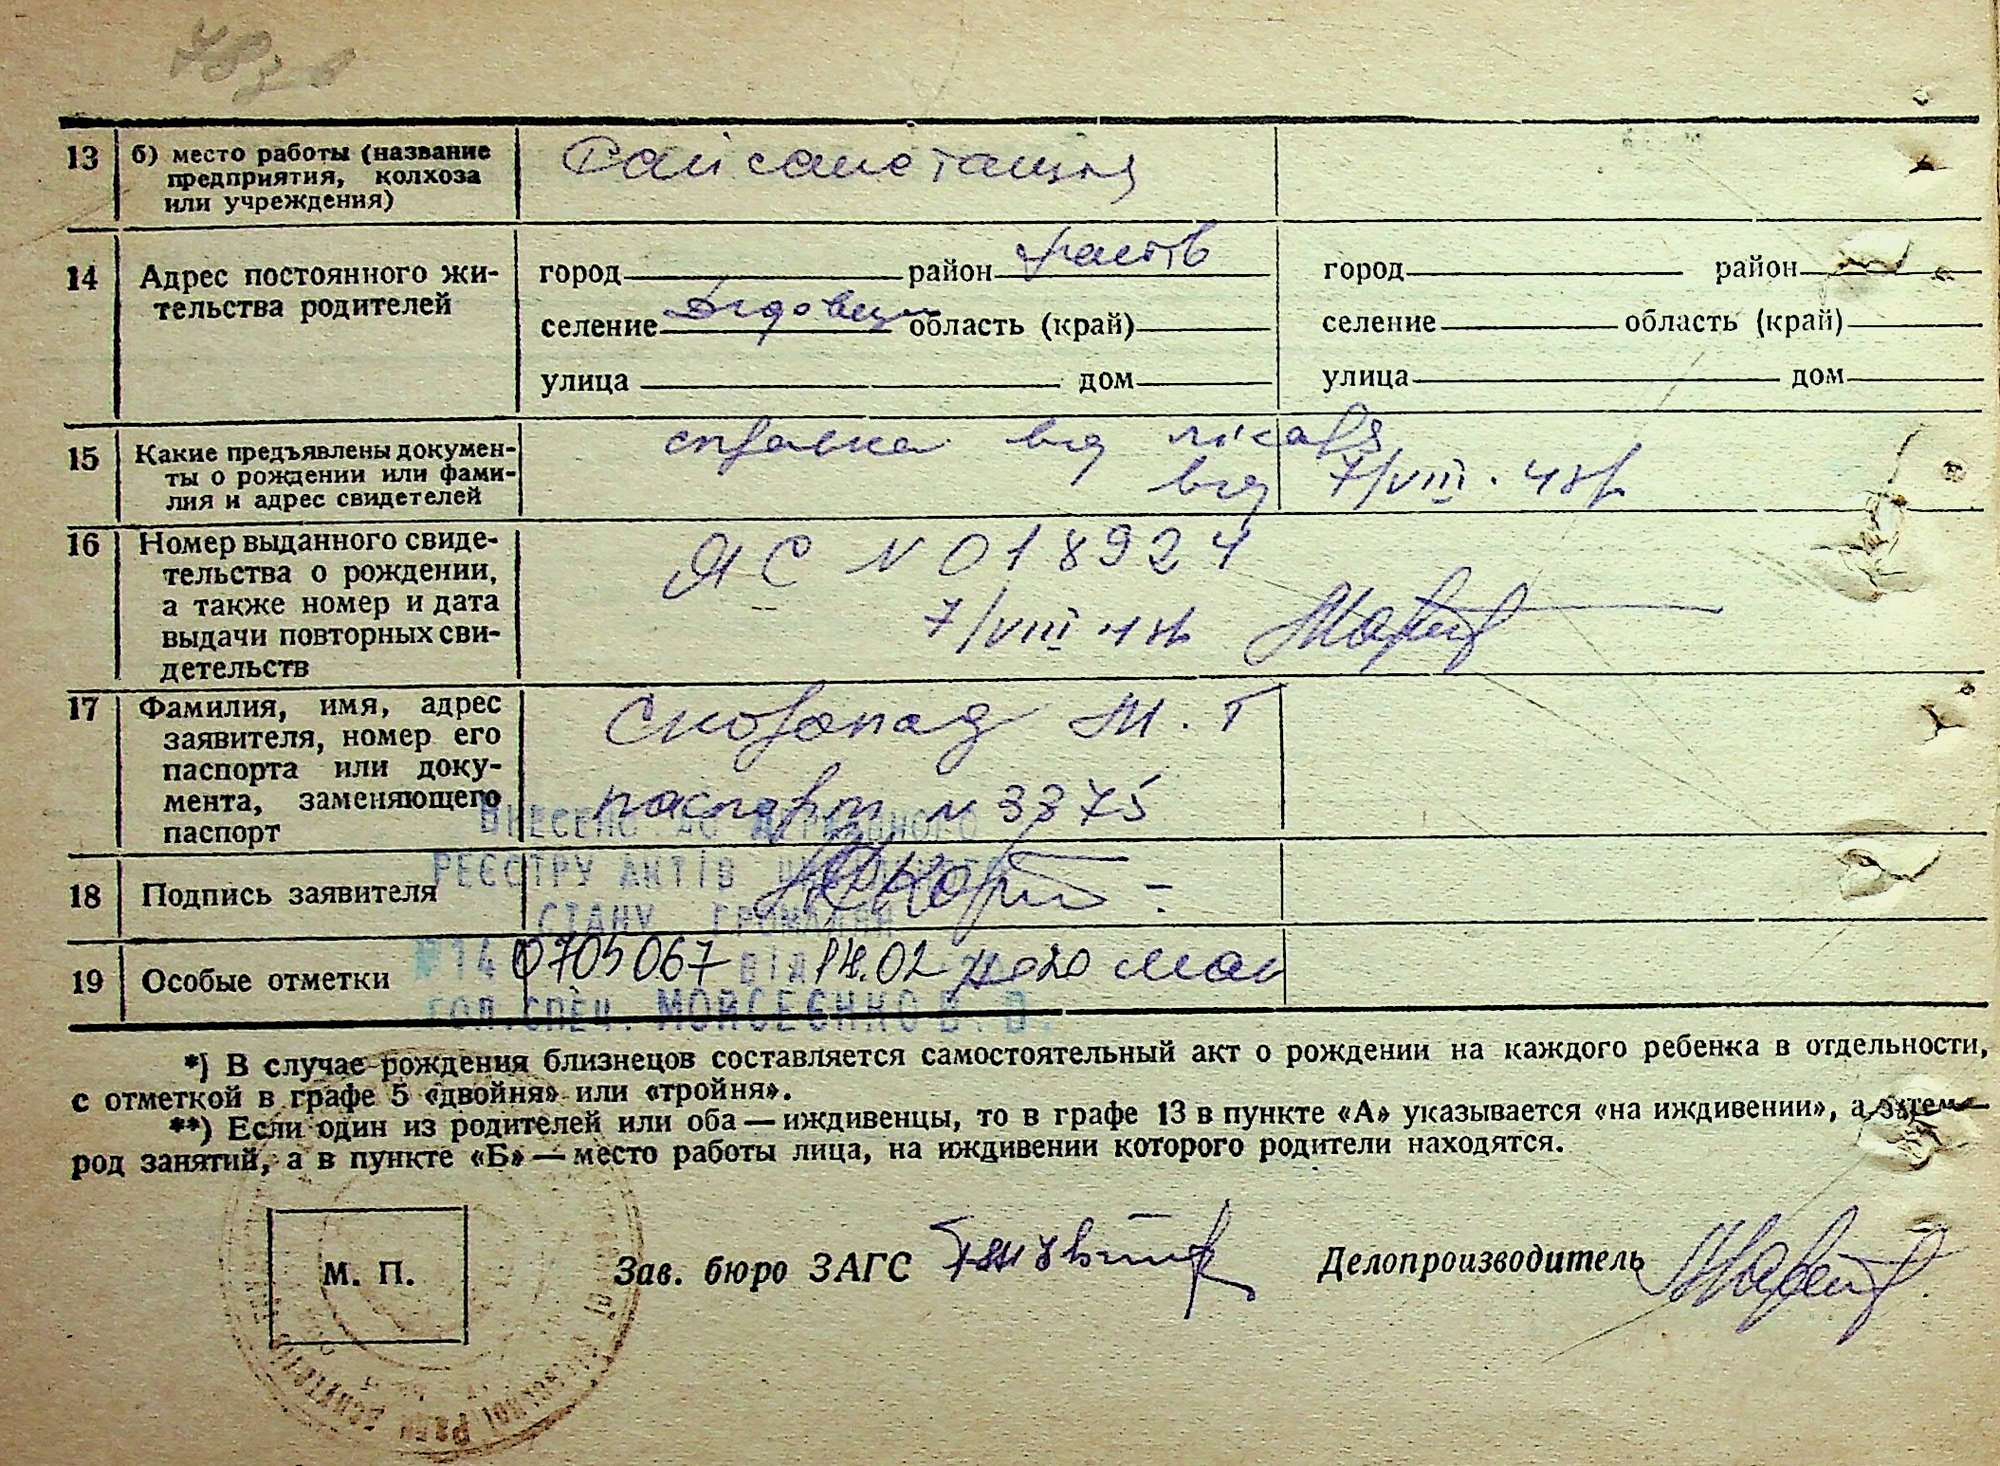 13 б) место работы (название
предприятия, колхоза
или учреждения)
Райсанстанция
14 Адрес постоянного жи-
тельства родителей
город район
селение область (край)
улица дом
город район
селение область (край)
улица дом
15 Какие предъявлены докумен-
ты о рождении или фами-
лия и адрес свидетелей
справка від лікаря
від 7/VIII. 48р
16 Номер выданного свиде-
тельства о рождении,
а также номер и дата
выдачи повторных сви-
детельств
ЯС N 018924
7/VIII 48р
17 Фамилия, имя, адрес
заявителя, номер его
паспорта или доку-
мента, заменяющего
паспорт
Скоропад М. Г
паспорт N 3375
ВНЕСЕНО ДО ДЕРЖАВНОГО
РЕЄСТРУ АКТІВ ЦИВІЛЬНОГО
18 Подпись заявителя
СТАНУ ГРОМАДЯН
19 Особые отметки
№14 0705067 ВІД 14.02
ГОЛ.СПЕЦ. МОЙСЕЄНКО В. В.
*) В случае рождения близнецов составляется самостоятельный акт о рождении на каждого ребенка в отдельности,
с отметкой в графе 5 «двойня» или «тройня».
**) Если один из родителей или оба — иждивенцы, то в графе 13 в пункте «А» указывается «на иждивении», а затем —
род занятий, а в пункте «Б» — место работы лица, на иждивении которого родители находятся.
М. П.
Зав. бюро ЗАГС
Делопроизводитель